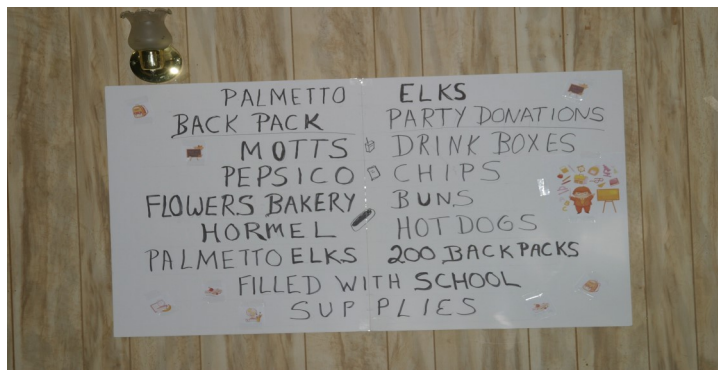 PALMETTO ELKS
BACK PACK PARTY DONATIONS
MOTTS DRINK BOXES
PEPSICO CHIPS
FLOWERS BAKERY BUNS
HORMEL HOTDOGS
PALMETTO ELKS 200 BACKPACKS
FILLED WITH SCHOOL
SUPPLIES